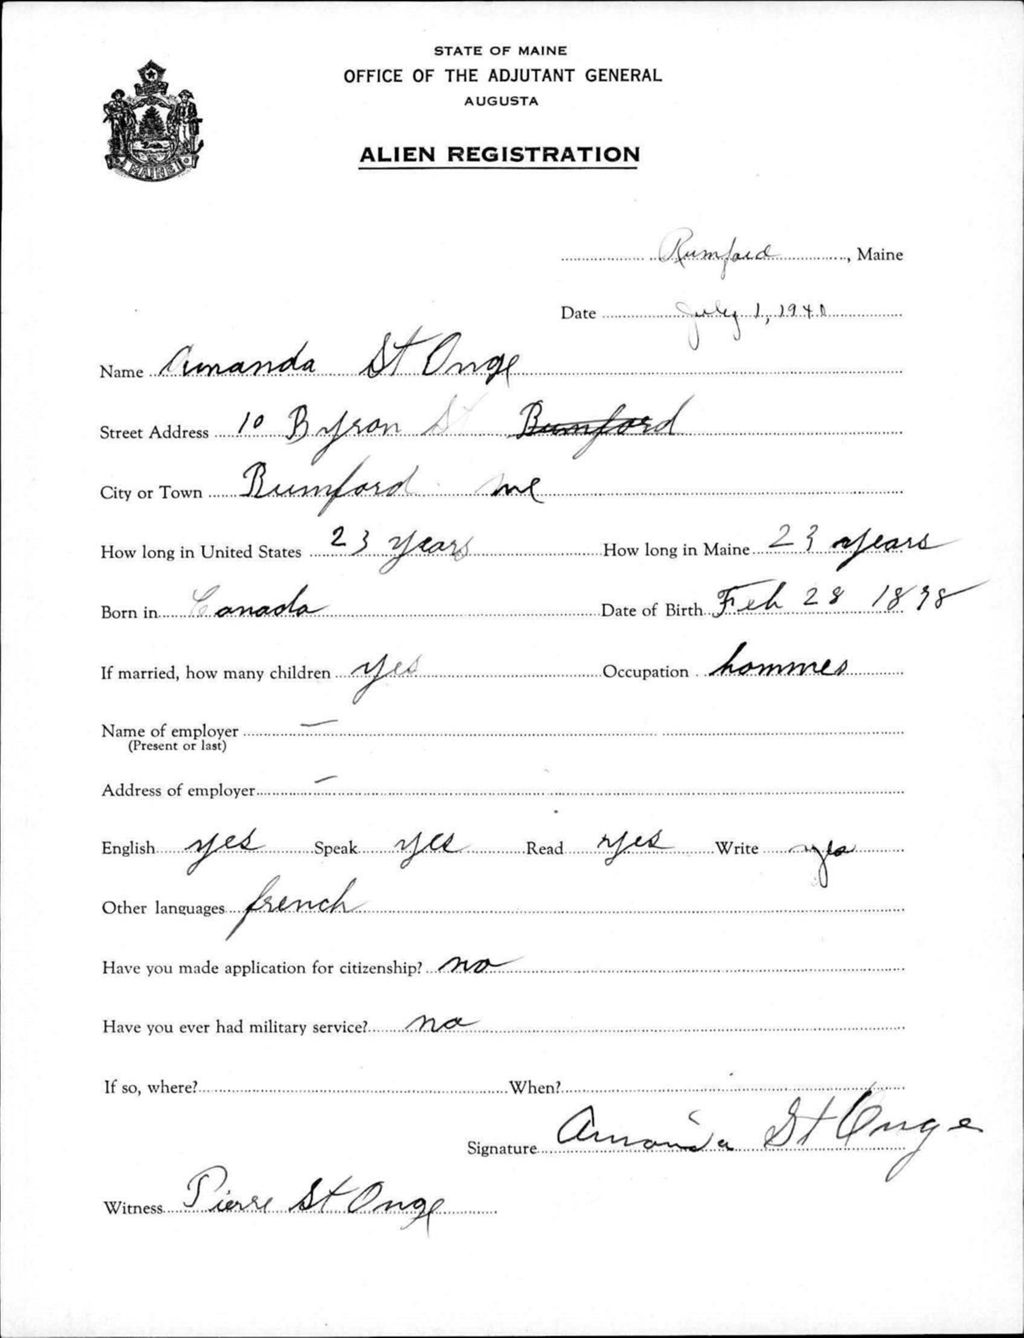 STATE OF MAINE
OFFICE OF THE ADJUTANT GENERAL
AUGUSTA
ALIEN REGISTRATION
MAINE
Rumford, Maine
Date July 1, 1940
Name Amanda St Onge
Street Address 10 Byron St Rumford
City or Town Rumford me
How long in United States 23 years How long in Maine 23 years
Born in Canada Date of Birth Feb 28 1898
If married, how many children yes Occupation hommes
Name of employer —
(Present or last)
Address of employer —
English yes Speak yes Read yes Write yes
Other languages french
Have you made application for citizenship? no
Have you ever had military service? no
If so, where? When?
Signature Amanda St Onge
Witness Pierre St Onge